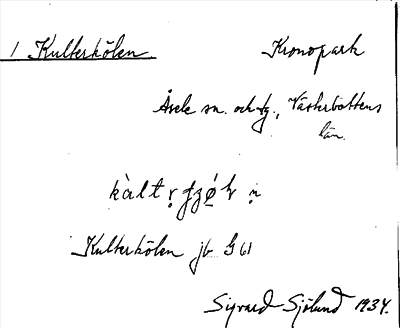 1 Kulterkölen Kronopark
Åsele sn. och tg., Västerbottens
län.
Kulterkölen jb G 61
Sigvard Sjölund 1934.